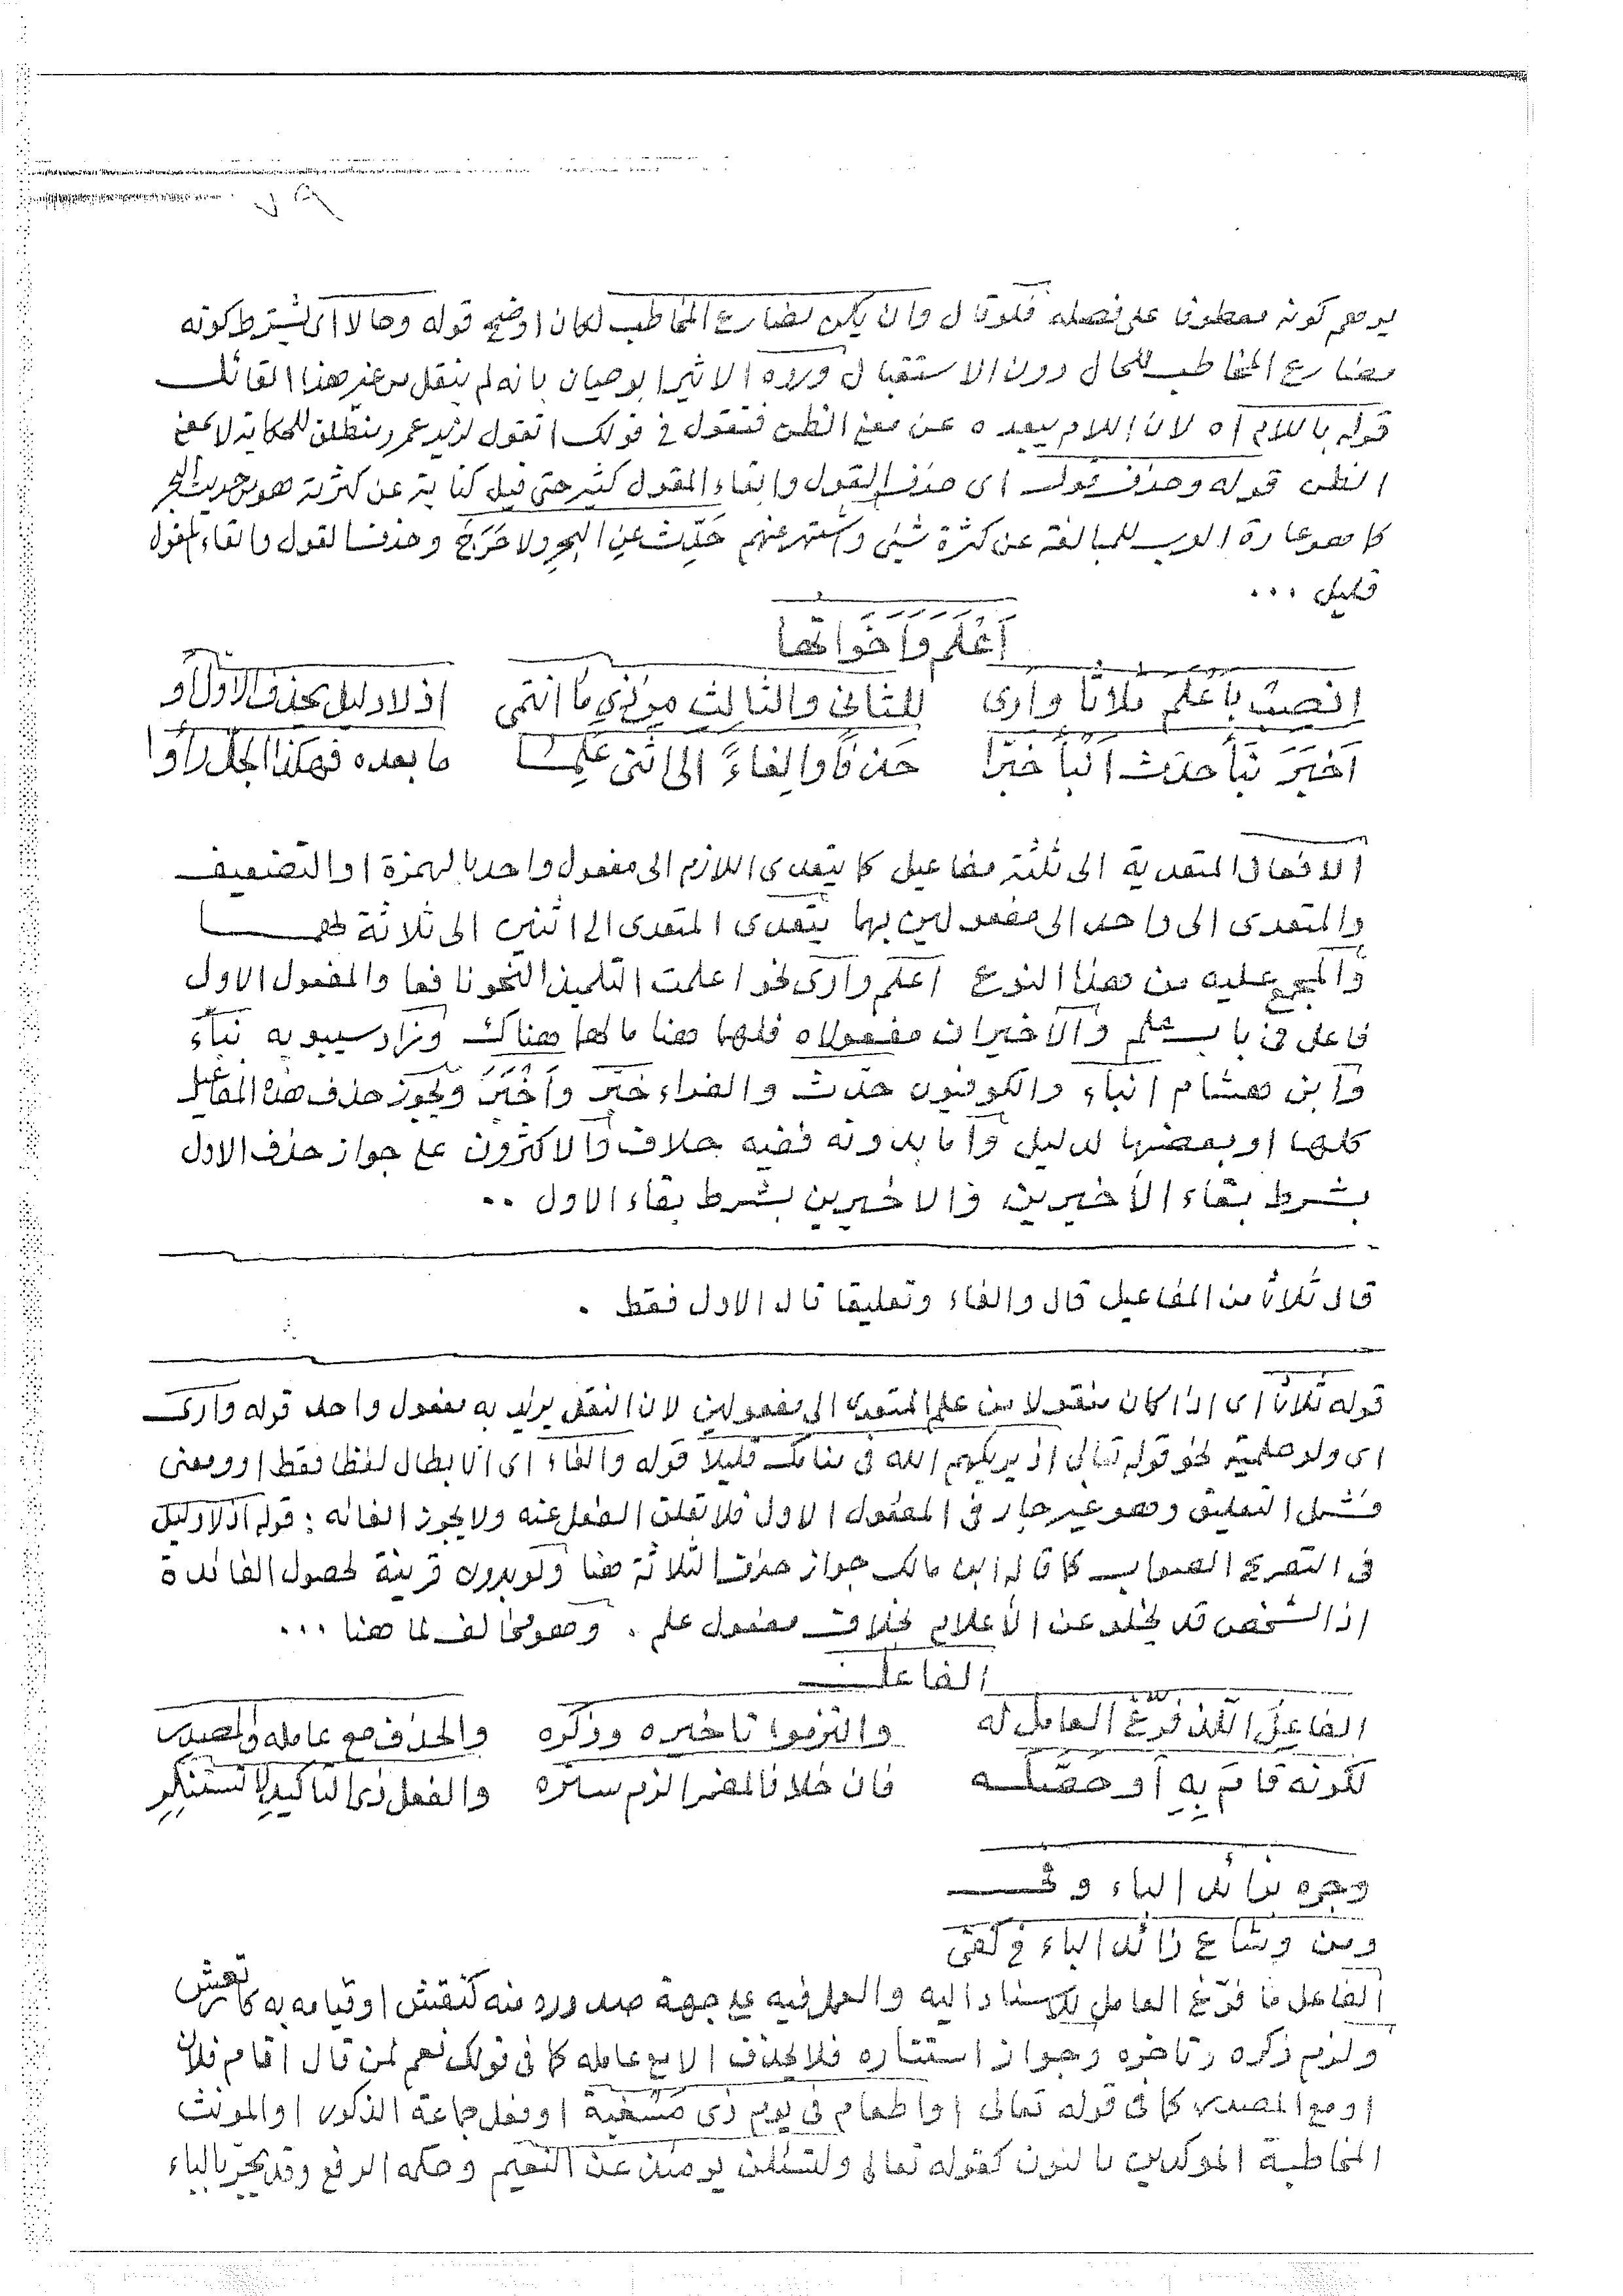 يوهم كونه معطوفا على فصله فلو قال وان يكن مضارع المخاطب لكان اوضح قوله وحالا اى يشترط كونه
مضارع المخاطب للحال دون الاستقبال ورده الاثير ابو حيان بانه لم ينقل من غير هذا القائل
قوله باللام اه لان اللام يبعده عن معنى الظن فتقول فى قولك اتقول لزيد عمرو منطلق للحكاية لا بمعنى
الظن قوله وحذف قول اى حذف القول وابقاء المقول كثير حتى قيل كناية عن كثرته هو من حديث البحر
كما هو عادة العرب للمبالغة عن كثرة شيئ واشتهر عنهم حَدِّث عن البحرِ ولا حَرَجَ وحذف القول وابقاء المقول
قليل ...
أَعْلَمَ وَأَخَوَاتُهَا
انصب باعلم ثلاثا وارى للثانى والثالث من ذى ما انتمى اذ لا دليل بحذف الاول و
أَخْبَرَ نَبَّأَ حدّث انبأ خبّرا حذفًا والغاءً الى اثنى عَلِمَا ما بعده فهكذا الجلّ رأوا
الافعال المتعدية الى ثلثة مفاعيل كما يتعدى اللازم الى مفعول واحد بالهمزة او التضعيف
والمتعدى الى واحد الى مفعولين بهما يتعدى المتعدى الى اثنين الى ثلاثة بهما
والمجمع عليه من هذا النوع اعلم وارى نحو اعلمت التلميذ النحو نافعا والمفعول الاول
فاعل فى باب علم والاخيران مفعولاه فلهما هنا ما لهما هناك وزاد سيبويه نبّأء
وابن هشام انبأء والكوفيون حدّث والفراء خبّر وأخبر ويجوز حذف هذه المفاعيل
كلها او بعضها لدليل واما بدونه ففيه خلاف والاكثرون على جواز حذف الاول
بشرط بقاء الأخيرين والاخيرين بشرط بقاء الاول ..
قال ثلاثا من المفاعيل قال والغاء وتعليقا قال الاول فقط .
قوله ثلاثا اى اذا كان منقولا من علم المتعدى الى مفعولين لان النقل يزيد به مفعول واحد قوله وارى
اى ولو حلمية نحو قوله تعالى اذ يريكهم الله فى منامك قليلا قوله والغاء اى الابطال لفظا فقط او ومعنى
فشمل التعليق وهو غير جار فى المفعول الاول فلا تعلق الفعل عنه ولا يجوز الغائه : قوله اذ لا دليل
فى التصريح الصواب كما قاله ابن مالك جواز حذف الثلاثة هنا ولو بدون قرينة لحصول الفائدة
اذ الشخص قد يخلو عن الأعلام بخلاف مفعول علم . وهو مخالف لما هنا ...
الفاعل
الفاعل اللّذ فُرِّغ العامل له والتزموا تاخيره وذكره والحذف مع عامله والمصدر
لكونه قامَ بِهِ أو حَصَّلَه فان خلا فالمضمر الزم ستره والفعل ذى التأكيد لا تستنكرِ
وجره بزائد الباء و
ومن وشاع زائد الباء فى كفى
الفاعل ما فرّغ العامل للاسناد اليه والعمل فيه على جهة صدوره منه كنقش او قيامه به كانتعش
ولزم ذكره وتاخره وجواز استتاره فلا يحذف الا مع عامله كما فى قولك نعم لمن قال أقام فلان
او مع المصدر كما فى قوله تعالى او اطعام فى يوم ذى مسغبة او فعل جماعة الذكور او المونث
المخاطبة الموكدين بالنون كقوله تعالى ولتسئلن يومئذ عن النعيم وحكمه الرفع وقد يجرّ بالباء